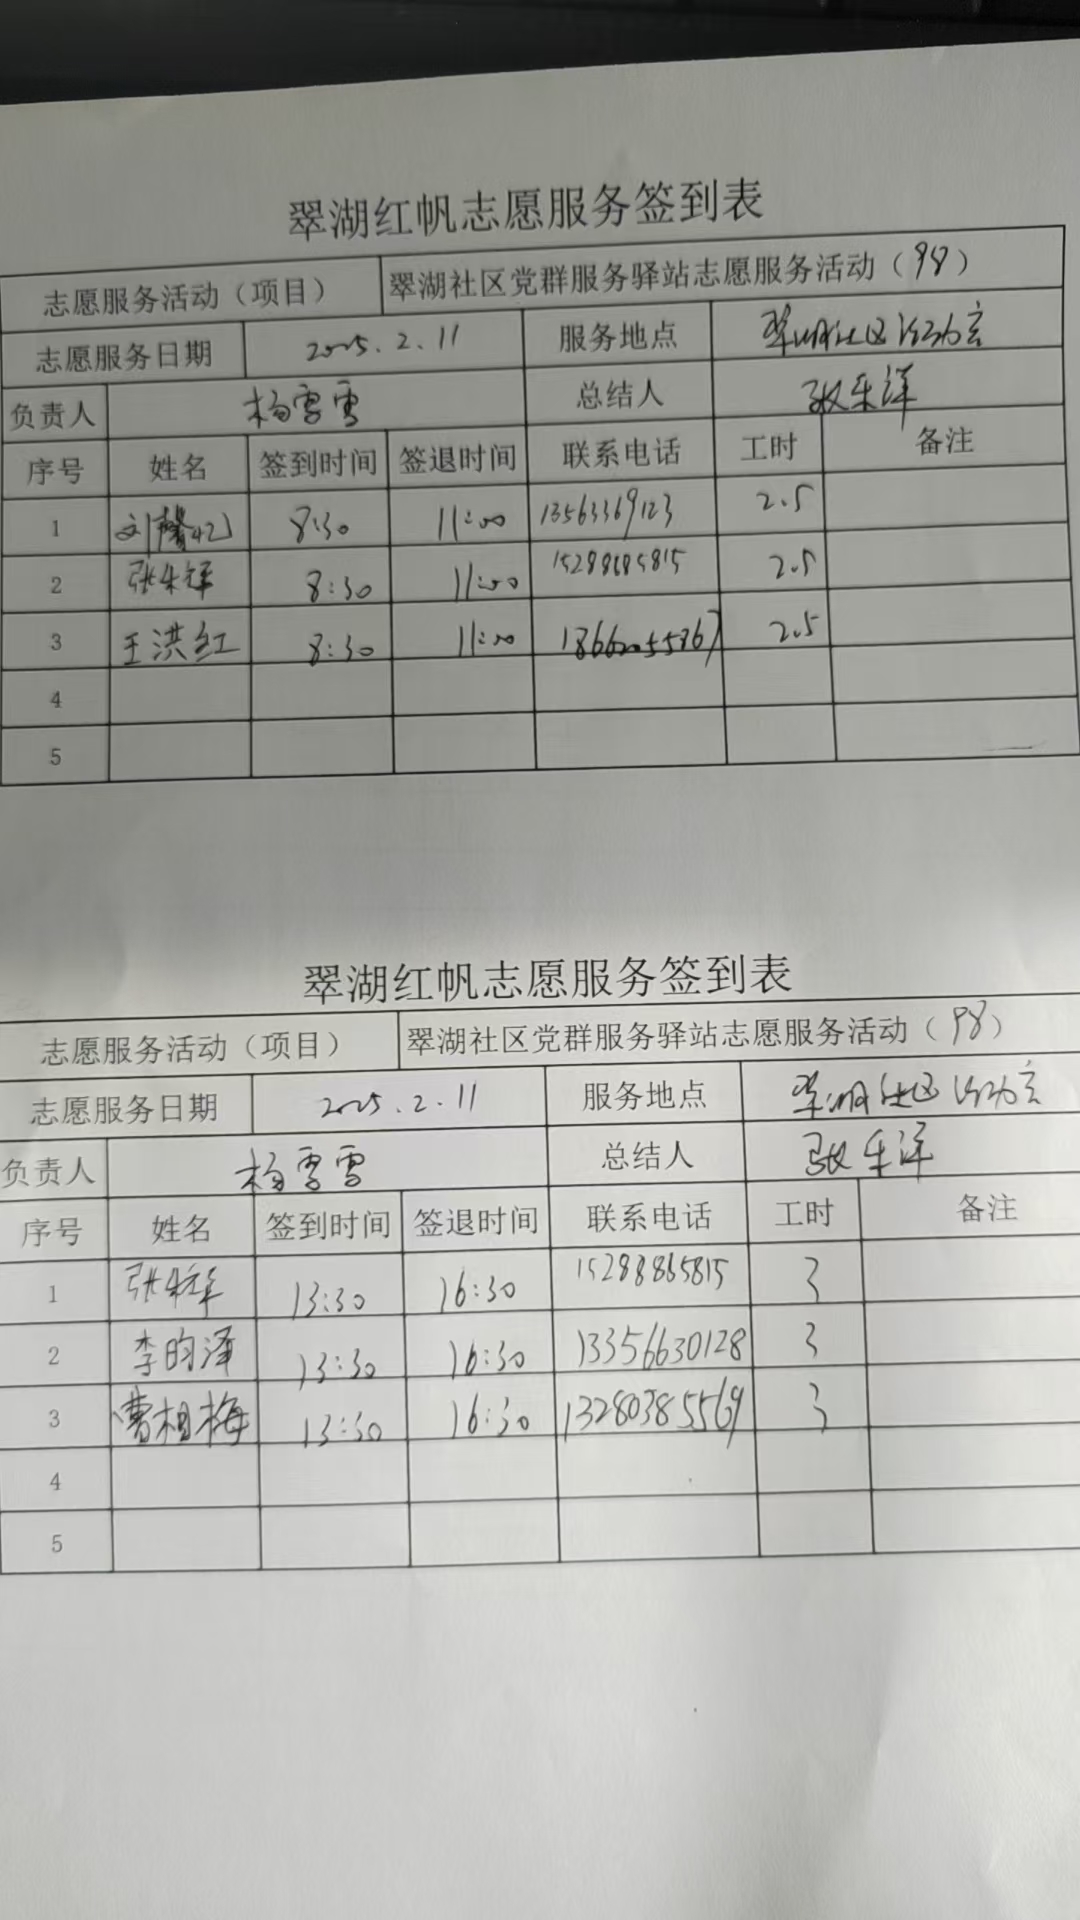 翠湖红帆志愿服务签到表
志愿服务活动（项目） 翠湖社区党群服务驿站志愿服务活动（98）
志愿服务日期 2025.2.11 服务地点 翠湖社区活动室
负责人 杨雪雪 总结人 张乐洋
序号 姓名 签到时间 签退时间 联系电话 工时 备注
1 刘馨忆 8:30 11:00 13563369123 2.5
2 8:30 11:00 2.5
3 王洪红 8:30 11:00 18662055867 2.5
4
5
翠湖红帆志愿服务签到表
志愿服务活动（项目） 翠湖社区党群服务驿站志愿服务活动（98）
志愿服务日期 2025.2.11 服务地点 翠湖社区活动室
负责人 杨雪雪 总结人 张乐洋
序号 姓名 签到时间 签退时间 联系电话 工时 备注
1 13:30 16:30 15288865815 3
2 李昀泽 13:30 16:30 13356630128 3
3 曹相梅 13:30 16:30 13280385569 3
4
5